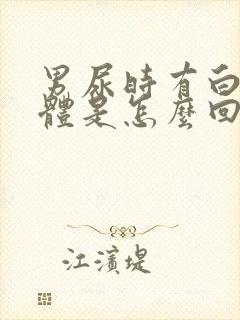 男尿時有白
體是怎麼回
江濱堤